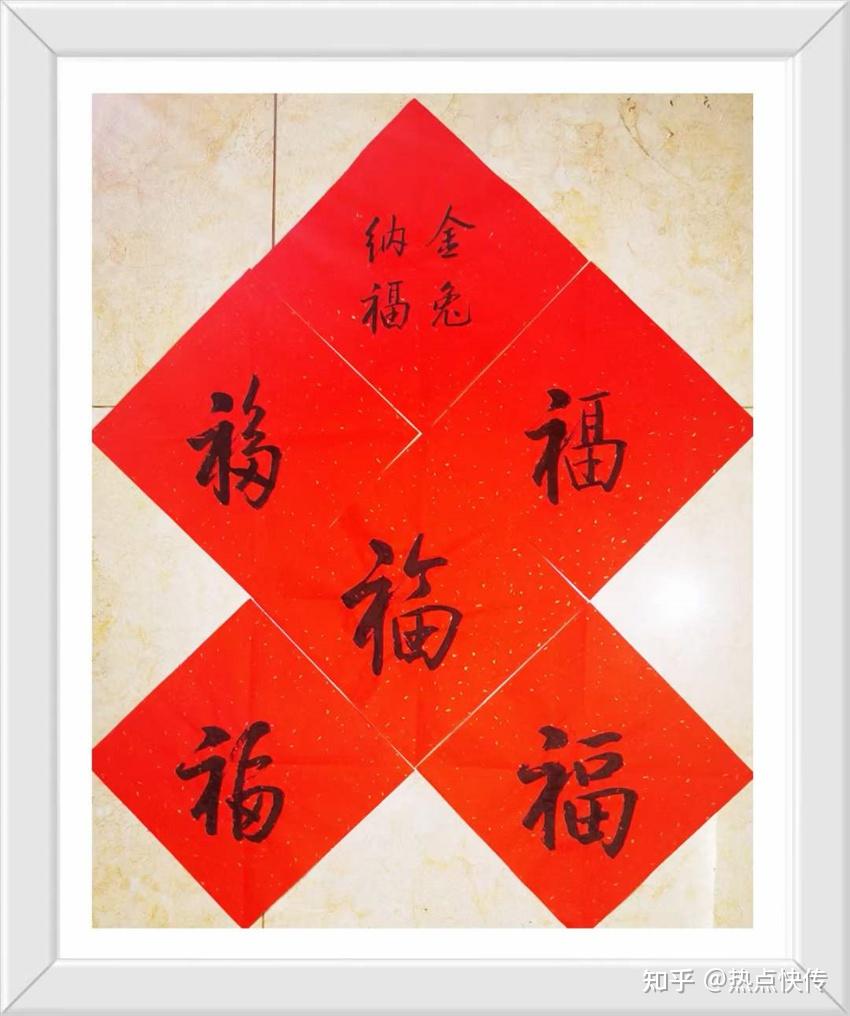 金兔
纳福
福
福
福
福
福
知乎 @热点快传